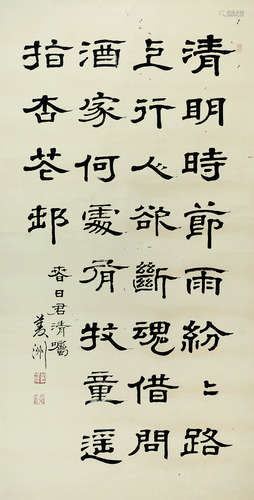 清明時節雨紛〻路
上行人欲斷魂借問
酒家何處有牧童遙
指杏花邨
春日君清囑